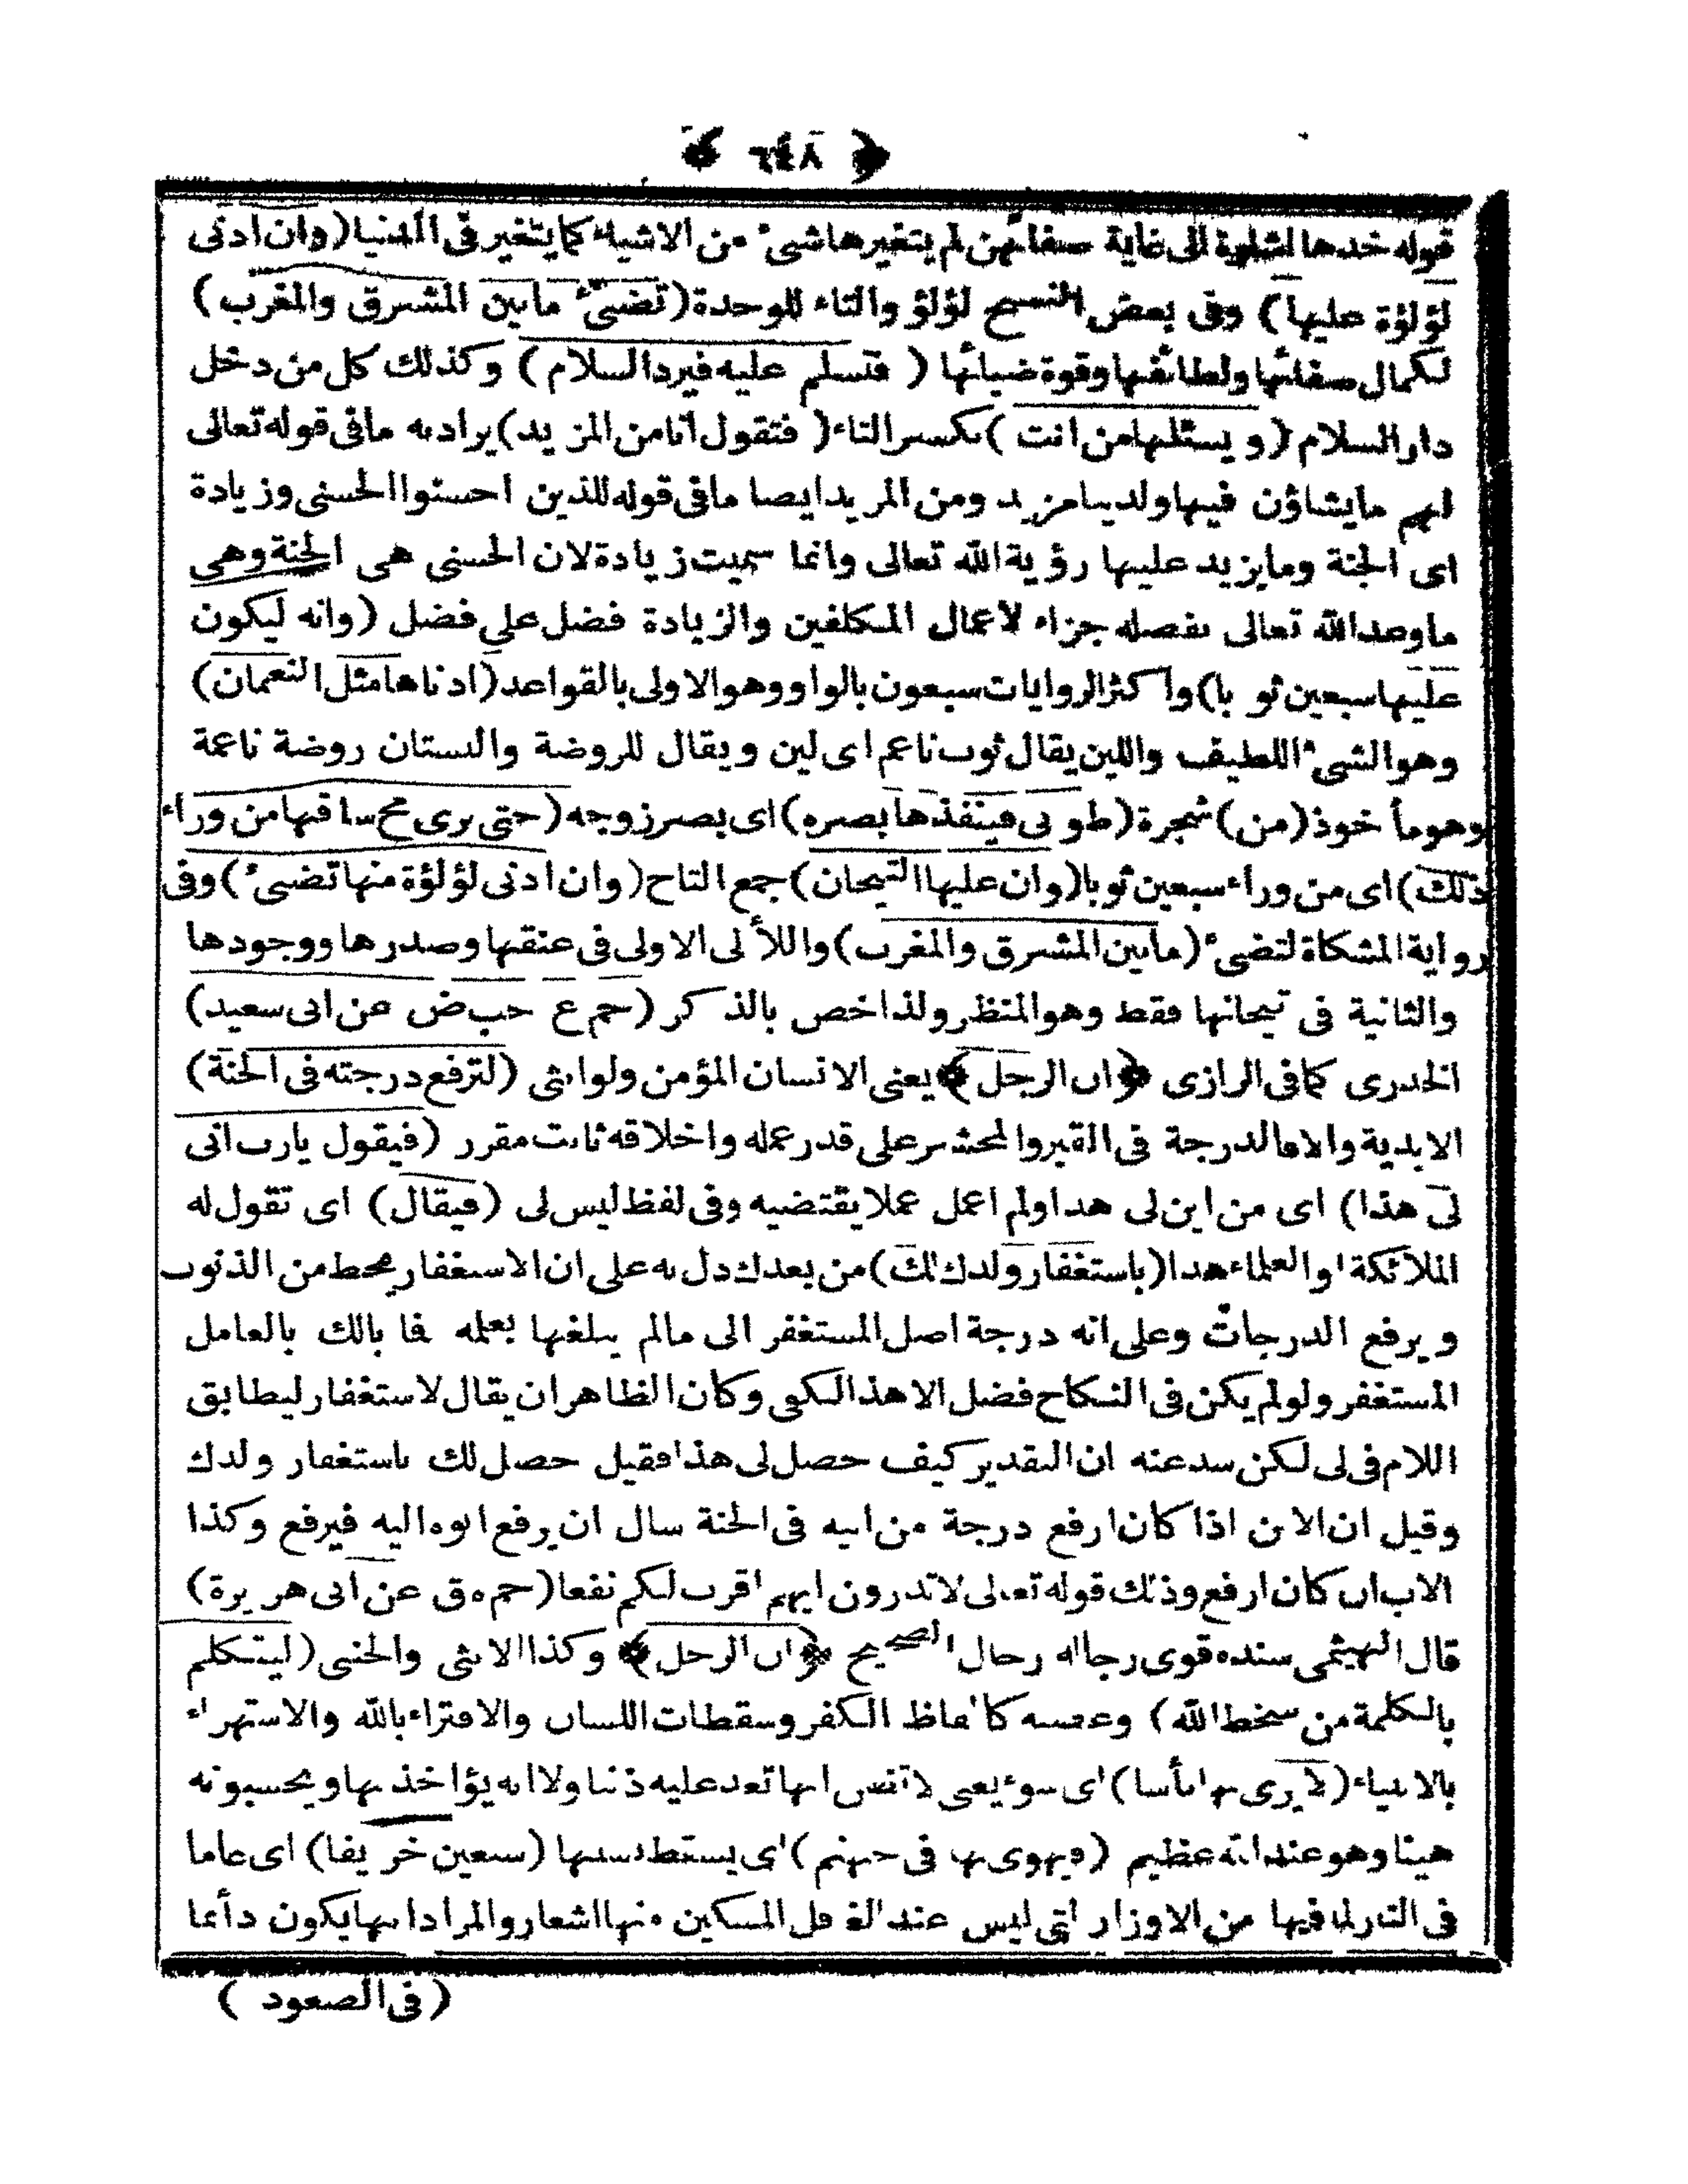 ﴿ ٦٤٨ ﴾
قوله خدها اشارة الى غاية صفائهن لم يتغيرها شئ من الاشياء كما يتغير فى الدنيا (وان ادنى
لؤلؤة عليها) وفى بعض النسخ لؤلؤ والتاء للوحدة (تضئ مابين المشرق والمغرب)
لكمال صفائها ولطائفها وقوة ضيائها ( فتسلم عليه فيرد السلام ) وكذلك كل من دخل
دار السلام (ويسئلها من انت ) بكسر التاء ( فتقول انا من المزيد) يراد به مافى قوله تعالى
لهم مايشاؤن فيها ولدينا مزيد ومن المزيد ايضا مافى قوله للذين احسنوا الحسنى وزيادة
اى الجنة ومايزيد عليها رؤية الله تعالى وانما سميت زيادة لان الحسنى هى الجنة وهى
ماوعد الله تعالى بفضله جزاء لاعمال المكلفين والزيادة فضل على فضل (وانه ليكون
عليها سبعين ثوبا) واكثر الروايات سبعون بالواو وهو الاولى بالقواعد (ادناها مثل النعمان)
وهو الشئ اللطيف واللين يقال ثوب ناعم اى لين ويقال للروضة والبستان روضة ناعمة
وهو مأخوذ (من) شجرة (طوبى فينفذها بصره) اى بصر زوجه (حتى يرى مخ ساقها من وراء
ذلك) اى من وراء سبعين ثوبا (وان عليها التيجان) جمع التاج (وان ادنى لؤلؤة منها تضئ) وفى
رواية المشكاة لتضئ (مابين المشرق والمغرب) واللألى الاولى فى عنقها وصدرها ووجودها
والثانية فى تيجانها فقط وهو المنظر ولذا خص بالذكر (حم ع حب ض عن ابى سعيد)
الخدرى كما فى الرازى ﴿ ان الرجل ﴾ يعنى الانسان المؤمن ولو انثى (لترفع درجته فى الجنة)
الابدية والا فالدرجة فى القبر والمحشر على قدر عمله واخلاقه ثابت مقرر (فيقول يارب انى
لى هذا) اى من اين لى هذا ولم اعمل عملا يقتضيه وفى لفظ ليس لى (فيقال) اى تقول له
الملائكة او العلماء هذا (باستغفار ولدك لك) من بعدك دل به على ان الاستغفار يحط من الذنوب
ويرفع الدرجات وعلى انه درجة اصل المستغفر الى مالم يبلغها بعمله فما بالك بالعامل
المستغفر ولو لم يكن فى النكاح فضل الا هذا لكفى وكان الظاهر ان يقال لاستغفار ليطابق
اللام فى لى لكن سد عنه ان التقدير كيف حصل لى هذا فقيل حصل لك باستغفار ولدك
وقيل ان الابن اذا كان ارفع درجة من ابيه فى الجنة سال ان يرفع ابوه اليه فيرفع وكذا
الاب ان كان ارفع وذلك قوله تعالى لاتدرون ايهم اقرب لكم نفعا (حم ه ق عن ابى هريرة)
قال الهيثمى سنده قوى رجاله رجال الصحيح ﴿ ان الرجل ﴾ وكذا الانثى والخنثى (ليتكلم
بالكلمة من سخط الله) كالفاظ الكفر وسقطات اللسان والافتراء بالله والاستهزاء
بالانبياء (لايرى بها بأسا) اى سوء يعنى انها تعد عليه ذنبا ولا انه يؤاخذ بها ويحسبونه
هينا وهو عند الله عظيم (فيهوى بها فى جهنم) اى يسقط بسببها (سبعين خريفا) اى عاما
فى النار لما فيها من الاوزار التى ليس عند الغافل المسكين منها اشعار والمراد انها يكون دائما
( فى الصعود )